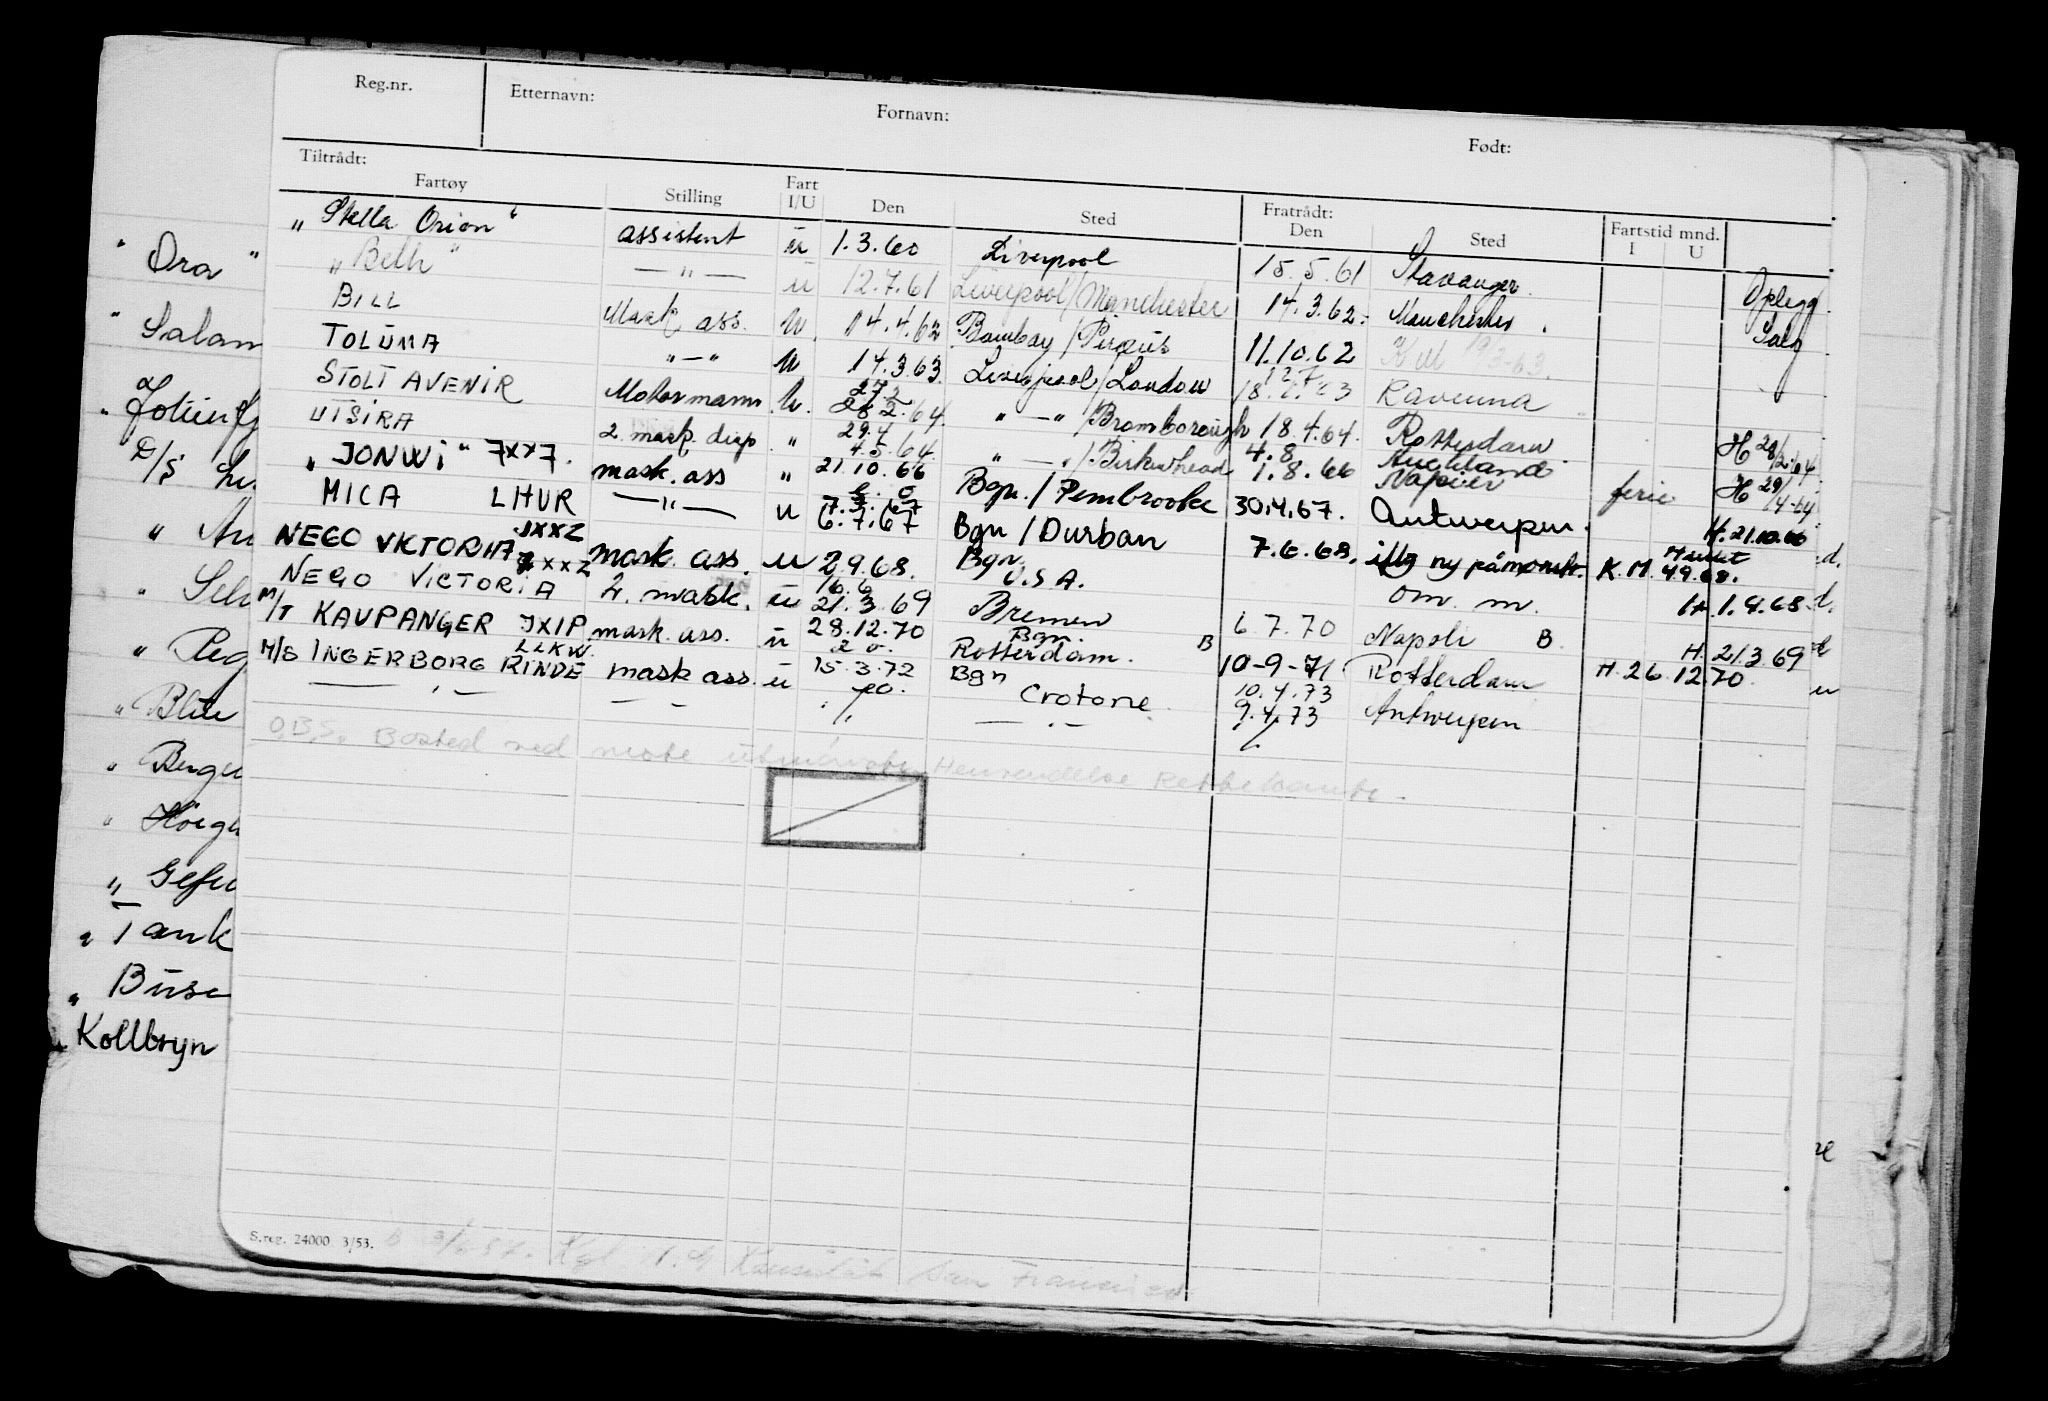 Reg.nr. Etternavn: Fornavn: Født:
Tiltrådt: Fratrådt: Fartstid mnd.
Fartøy Stilling Fart I/U Den Sted Den Sted I U
„ Stella Orion “ assistent u 1.3.60 Liverpool 15.5.61 Stavanger Oplegg
„ Belh “ — „ — u 12.7.61 Liverpool/Manchester 14.3.62 Manchester Salg
BILL Mask ass. u 14.4.62 Bombay/Pireus 11.10.62
TOLUMA „ — „ u 14.3.63 Liverpool/London Ravenna
STOLT AVENIR Motormann u. 27.2 28.2.64. „ — „ /Bromborough 18.4.64. Rotterdam H 28/2-64
UTSIRA 2 mask. disp „ 29.4 4.5.64 „ — „ /Birkenhead 4.8 1.8.66 Auckland Napier ferie H 29/4-64
„ JONWI “ 7XX7. mask. ass „ 21.10.66 Bgn. / Pembrooke 30.4.67. Antwerpen. H. 21.10.66
MICA LHUR — „ — u 6.7.67 Bgn / Durban 7.6.68. ny påmønstr. K.M. 4.9.68.
NEGO VICTORIA JXXZ mask. ass. u 2.9.68. Bgn. U.S.A. om. m. H. 1.9.68
NEGO VICTORIA JXXZ 2. mask. u 16.6 21.3.69 Bremen 6.7.70 Napoli B H. 21.3.69
M/T KAUPANGER JXIP mask. ass. u 28.12.70 Bgn. Rotterdam. B 10-9-71 Rotterdam H. 26.12.70
M/S INGERBORG RINDE LLKW. mask ass. u 15.3.72 Bgn Crotone 10.4.73 Antwerpen
— „ — 9.4.73
O.B.S. Bosted ved neste Henvendelse Rettelsante.
S.reg. 24000 3/53.
Kgl. N. Konsulat San Francisco
" Ora "
" Salam
D/S
" Peg
" Blue
" Berge
" Gefu
" Tank
" Buse
" Kollbryn